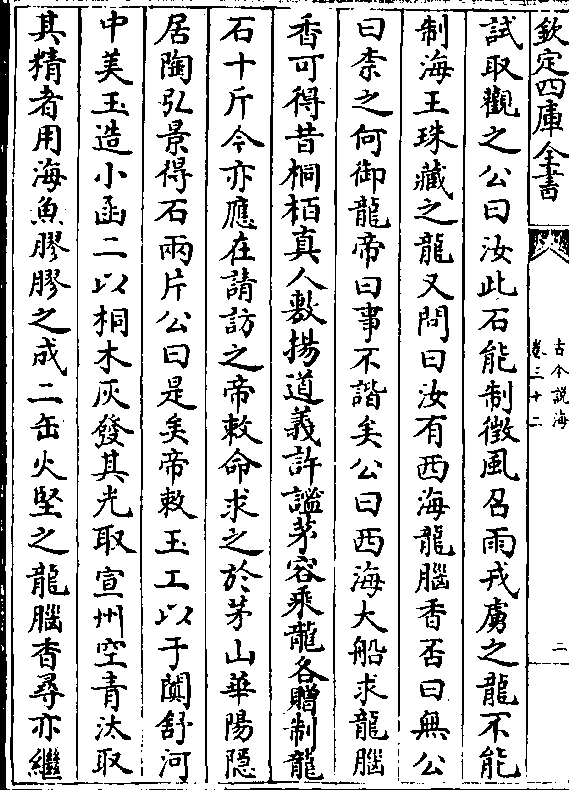 欽定四庫全書
古今說海
卷三十二
二
試取觀之公曰汝此石能制徴風召雨戎虜之龍不能
制海王珠藏之龍又問曰汝有西海龍腦香否曰無公
曰柰之何御龍帝曰事不諧矣公曰西海大船求龍腦
香可得昔桐栢真人敷揚道義許謐茅容乘龍各贈制龍
石十斤今亦應在請訪之帝敕命求之於茅山華陽隠
居陶弘景得石兩片公曰是矣帝敕玉工以于闐舒河
中美玉造小函二以桐木灰發其光取宣州空青汰取
其精者用海魚膠膠之成二缶火堅之龍腦香尋亦繼